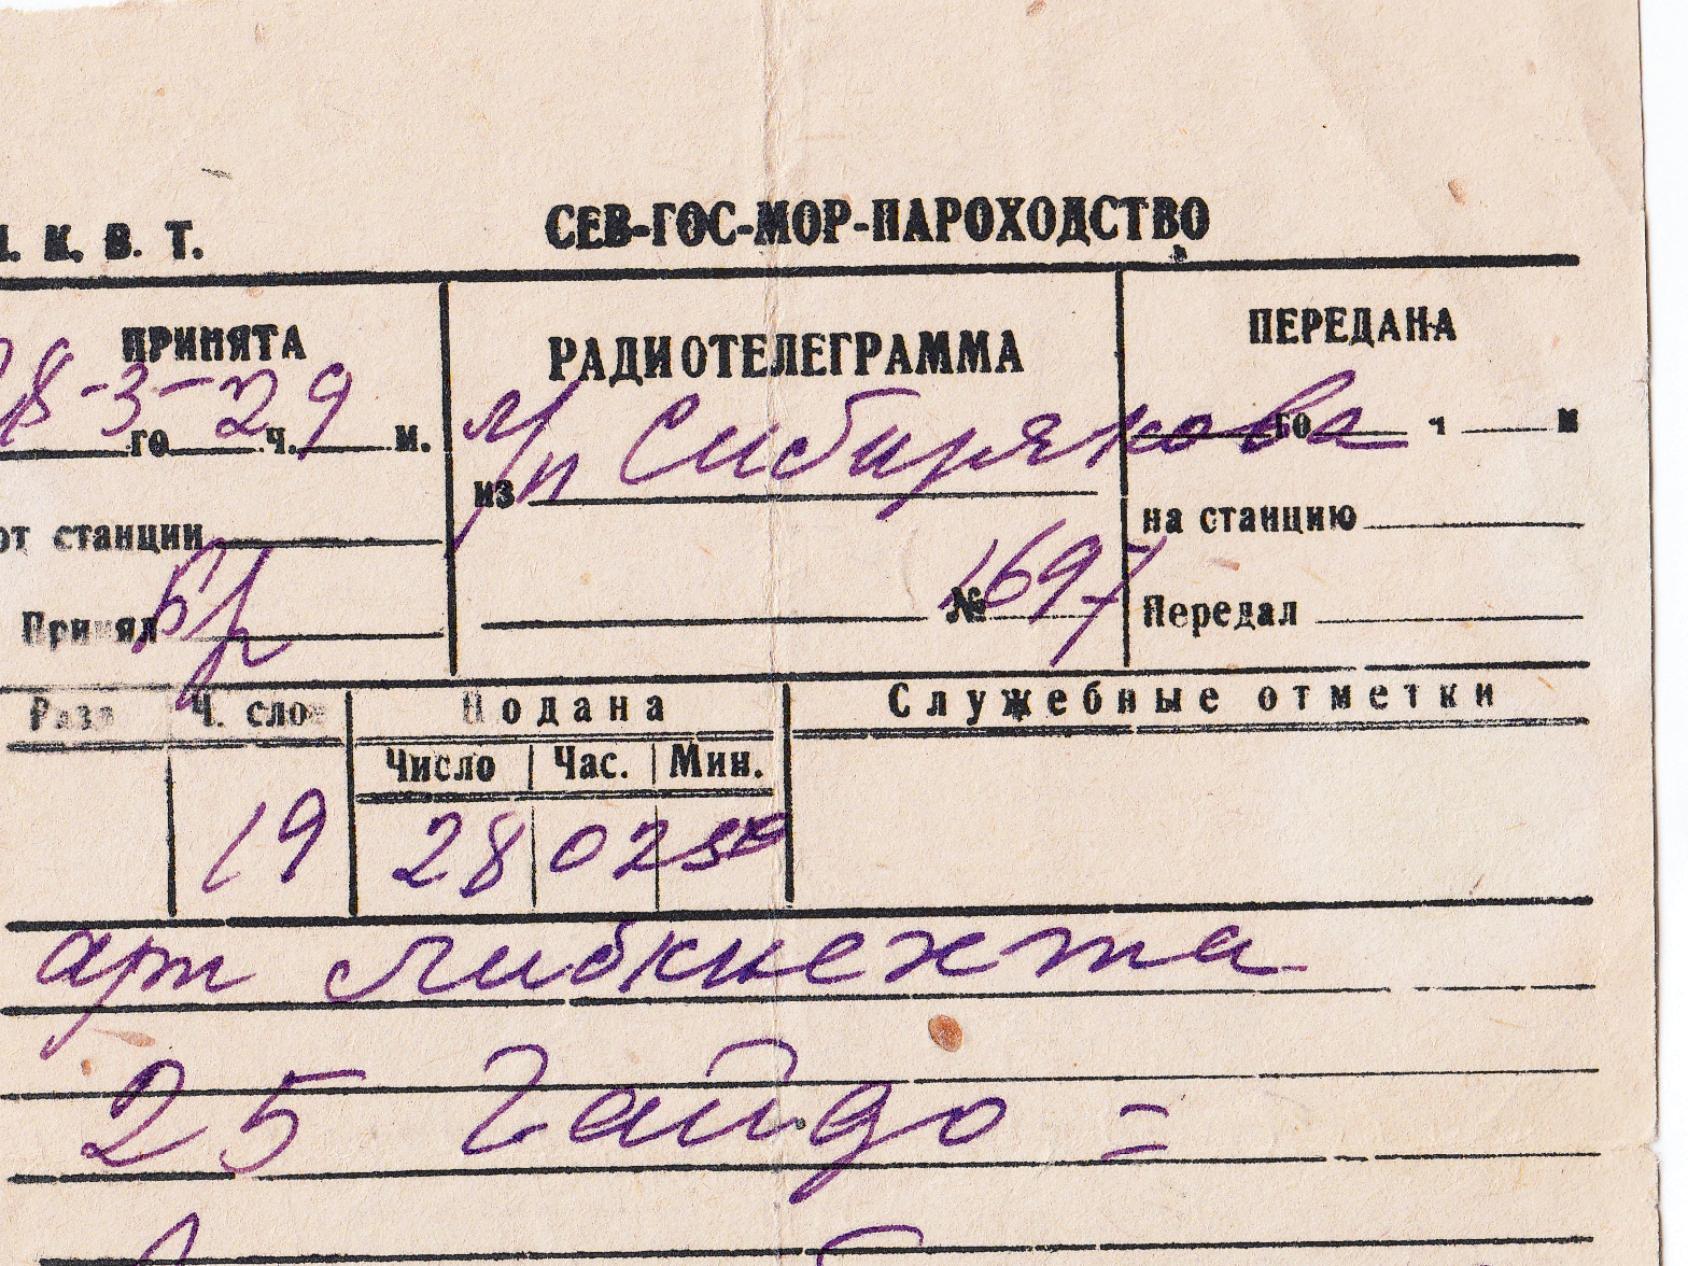 К. В. Т. СЕВ-ГОС-МОР-ПАРОХОДСТВО
ПРИНЯТА РАДИОТЕЛЕГРАММА ПЕРЕДАНА
28-3-29 го ч. м. Сибирякова го ч м
из
от станции на станцию
Принял № 1697 Передал
Разр Ч. слов Подана Служебные отметки
Число Час. Мин.
19 28 02 50
арт Либкнехта
25 Гайдо =